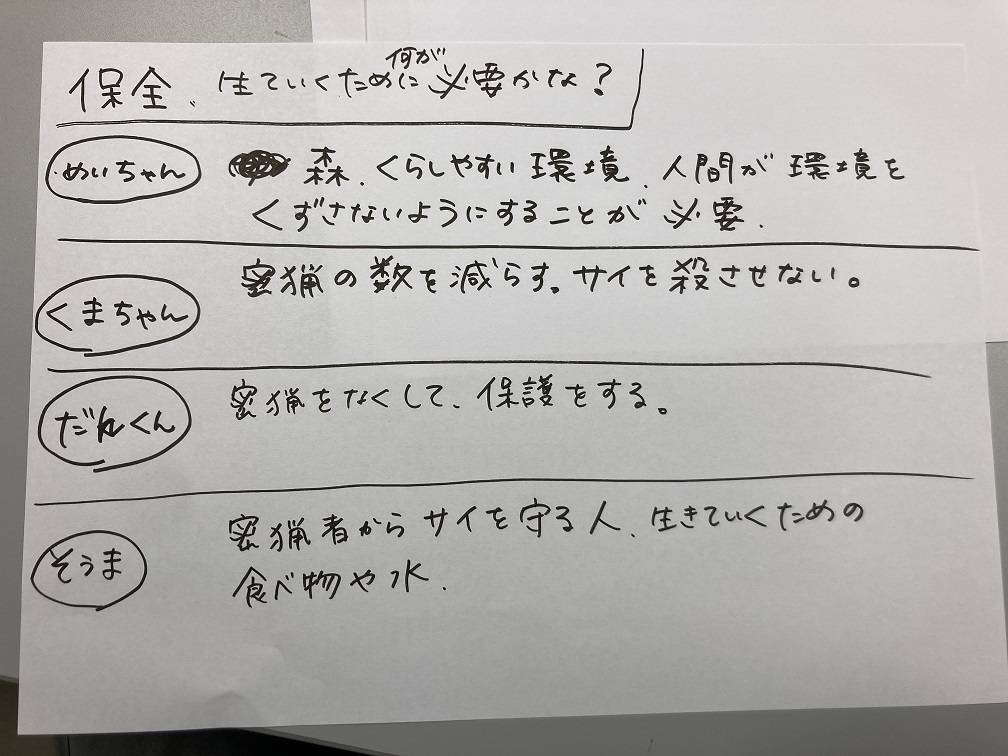 保全、生ていくために何が必要かな？
めいちゃん
森、くらしやすい環境、人間が環境を
くずさないようにすることが必要、
くまちゃん
密猟の数を減らす。サイを殺させない。
だんくん
密猟をなくして、保護をする。
そうま
密猟者からサイを守る人、生きていくための
食べ物や水、